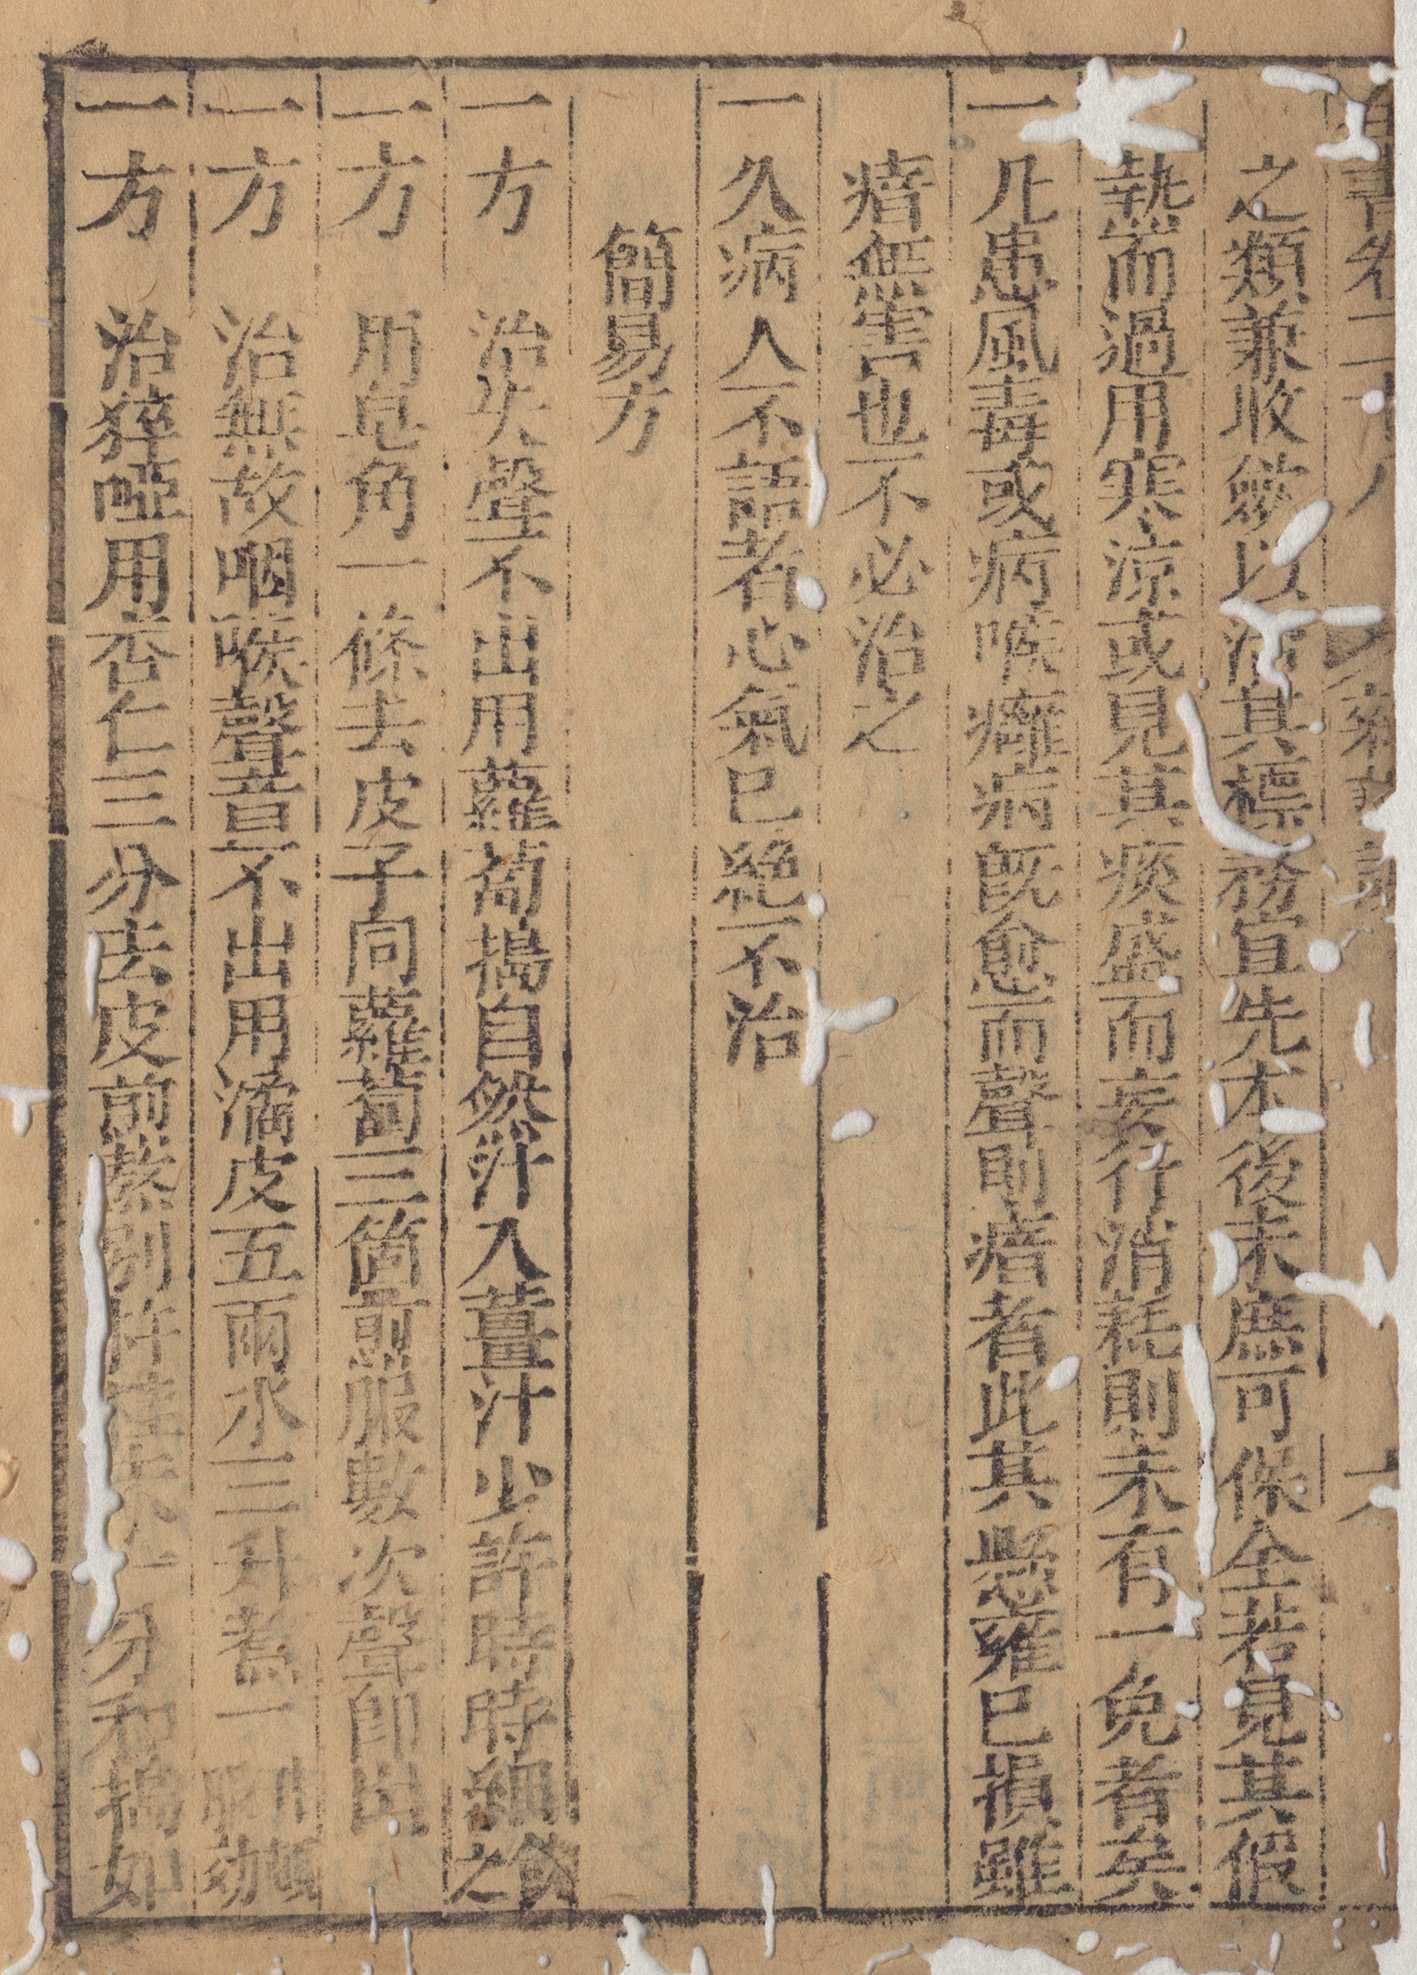 書卷二十八
六
之類兼收斂以治其標務宜先本後末庶可保全若見其假
熱而過用寒涼或見其痰盛而妄行消耗則未有一免者矣
一凡患風毒或病喉癰病既愈而聲則瘖者此其懸雍已損雖
瘖無害也不必治之
一久病人不語者心氣已絶不治
簡易方
一方 治失聲不出用蘿蔔搗自然汁入薑汁少許時時細飲之
一方 用皂角一條去皮子同蘿蔔三箇煎服數次聲即出
一方 治無故咽喉聲音不出用橘皮五兩水三升煮一升頓服効
一方 治猝啞用杏仁三分去皮煎熬別杵桂末一分和搗如